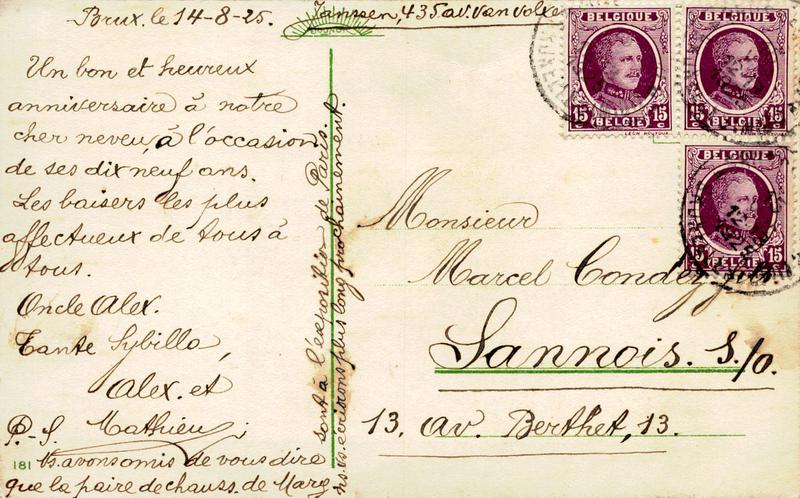 Brux. le 14-8-25.
Janssen, 435 av. van Volxe
Un bon et heureux
anniversaire à notre
cher neveu, à l'occasion
de ses dix neuf ans.
Les baisers les plus
affectueux de tous à
tous.
Oncle Alex.
Tante Sybilla,
Alex. et
Mathieu
P.-S.
Ns. avons omis de vous dire
que la paire de chauss. de Marg
sont à l'exposition de Paris.
ns. vs. écrirons plus long prochainement.
181
Monsieur
Marcel Condezy
Sannois. S/O.
13, Av. Berthet, 13.
BELGIQUE
15 c 15 c
BELGIË
BELGIQUE
15 c 15 c
BELGIË
BELGIQUE
15 c 15 c
BELGIË